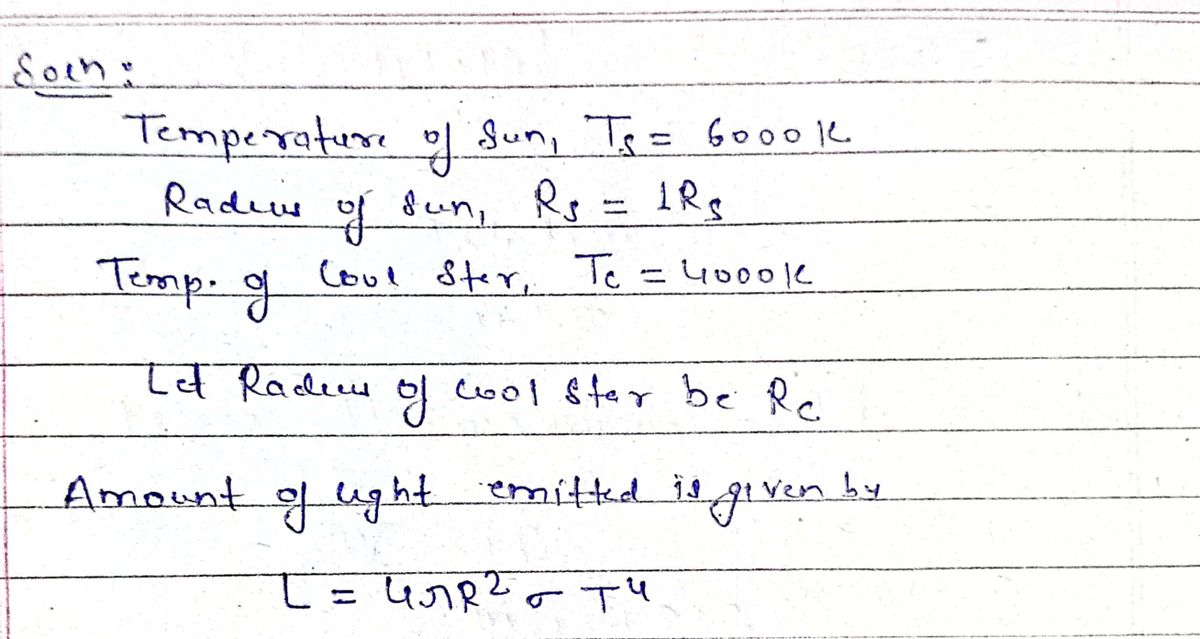 Soln :
Temperature of Sun, Ts = 6000 K
Radius of Sun, Rs = 1Rs
Temp. of Cool Star, Tc = 4000 K
Let Radius of cool star be Rc
Amount of light emitted is given by
L = 4πR² σ T⁴